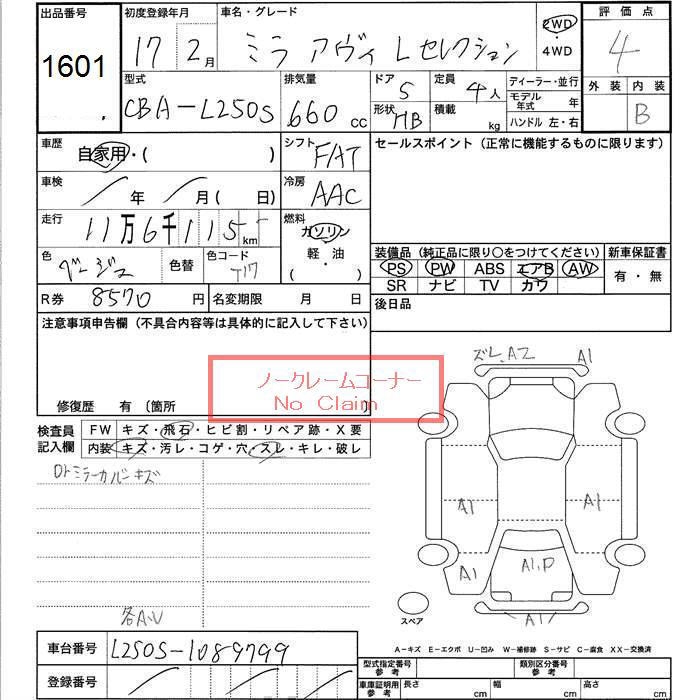 出品番号 初度登録年月 車名・グレード 評価点
1601 17年 2月 ミラ アヴィ Lセレクション 2WD・4WD 4
型式 排気量 ドア 5 定員 4人 ディーラー・並行 外装 内装
CBA-L250S 660cc 形状 HB 積載 kg モデル年式 年 B
ハンドル 左・右
車歴 自家用・( ) シフト FAT セールスポイント (正常に機能するものに限ります)
車検 / 年 / 月 ( 日) 冷房 AAC
走行 11万6千115km 燃料 ガソリン
軽・油
( ・ )
色 ベージュ 色替 色コード T17
装備品 (純正品に限り〇をつけてください) 新車保証書
PS PW ABS エアB AW 有・無
SR ナビ TV カワ
R券 8570円 名変期限 月 日 後日品
注意事項申告欄 (不具合内容等は具体的に記入して下さい)
ノークレームコーナー
No Claim
修復歴 有 (箇所
検査員記入欄 FW キズ・飛石・ヒビ割・リペア跡・X要
内装 キズ・汚レ・コゲ・穴・スレ・キレ・破レ
Dトミラーカバーキズ
各A.U
ズレ,A2 A1
A1 A1
A1 A1,P
A1
スペア
A-キズ E-エクボ U-凹み W-補修跡 S-サビ C-腐食 XX-交換済
車台番号 L250S-1089799
登録番号
型式指定番号 参考 類別区分番号 参考
車庫証明用 参考 長さ cm 幅 cm 高さ cm